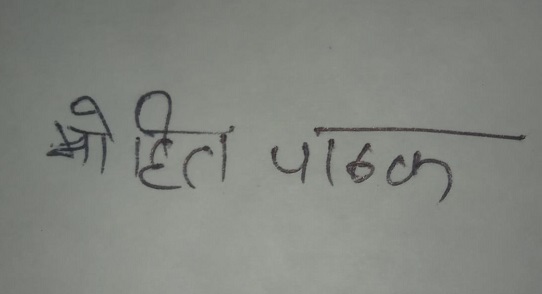 मोहित पाठक